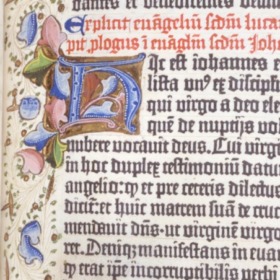 dantes et benedicentes deu
Explicit euāgeliū scd̄m luca
pit ꝓlogus ī euāgliū scd̄m Joh
Hic est iohannes
lista unꝰ ex discip
qui virgo a deo ele
de nuptijs vol
nubere vocauit deus. Cui virgi
in hoc duplex testimoniū datu
angelio: ꝙ et pre ceteris dilectu
dicit: et huic matrem suā de cru
mendauit dn̄s. ut virginē virgo
ret. Deniqꝫ manifestans in eua
ꝙ erat ip̄e incorruptibilis